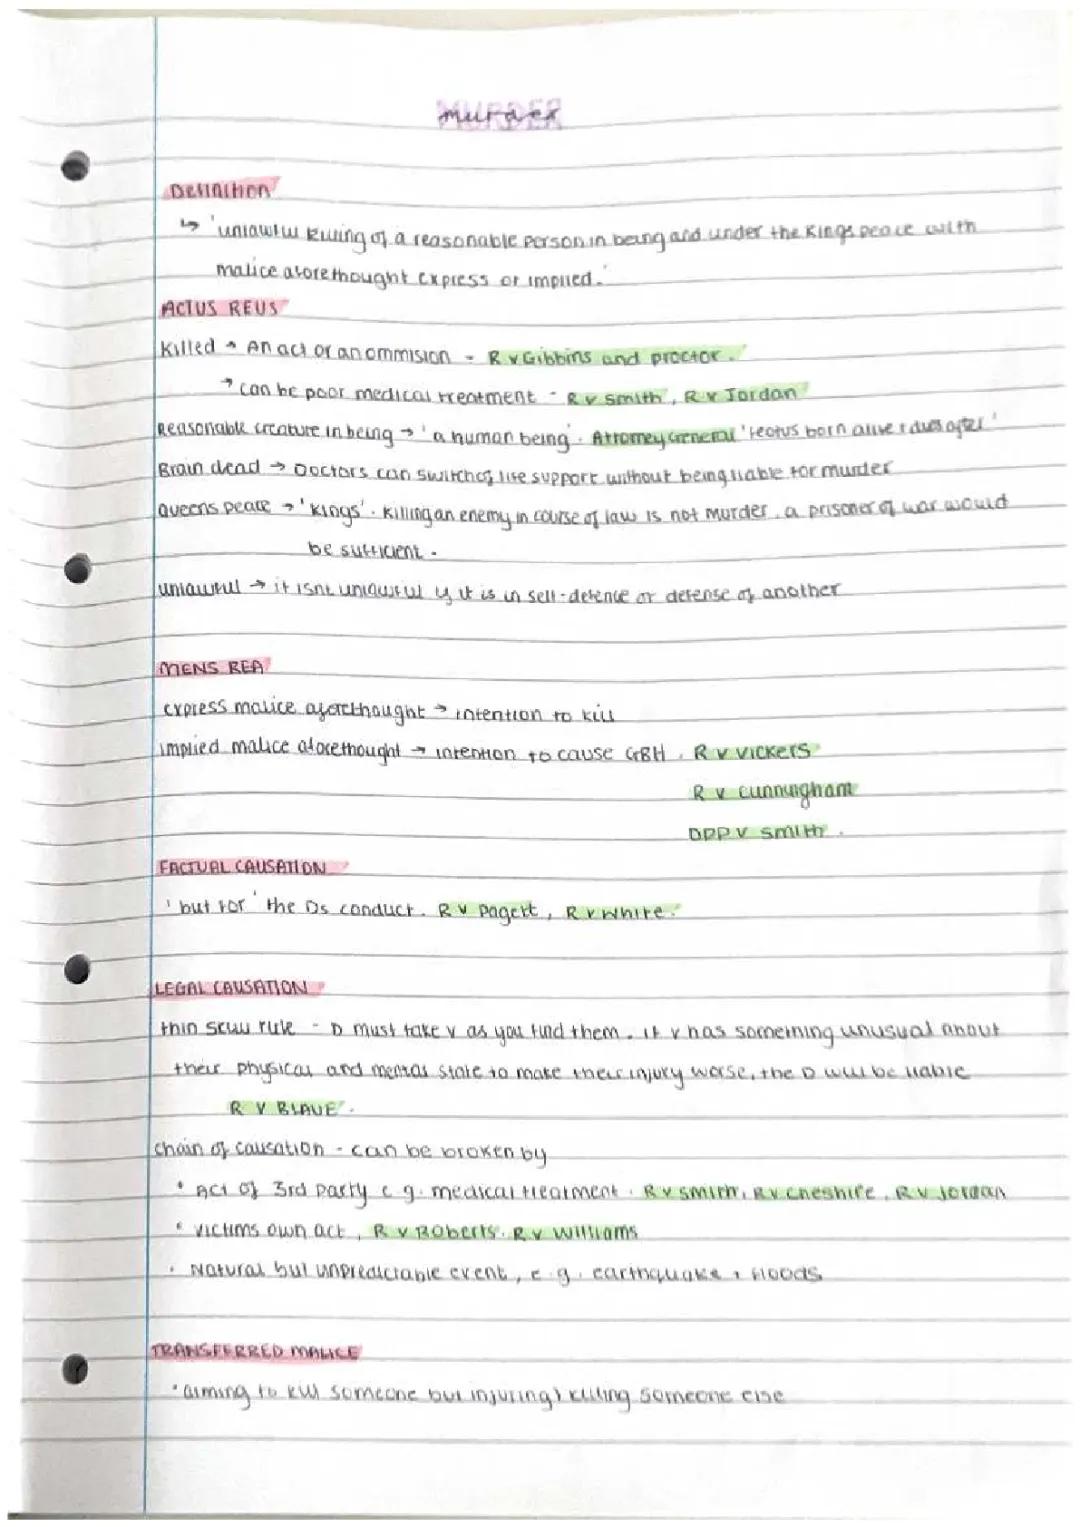 MURDER
Definition
↳ 'unlawful killing of a reasonable person in being and under the Kings peace with
malice aforethought express or implied.'
ACTUS REUS
Killed → An act or an ommision - R v Gibbins and proctor.
→ can be poor medical treatment - R v Smith, R v Jordan
Reasonable creature in being → 'a human being'. Attorney General 'feotus born alive & dies after'
Brain dead → Doctors can switch off life support without being liable for murder
Queens peace → 'Kings'. Killing an enemy in course of law is not murder, a prisoner of war would
be sufficient.
unlawful → it isnt unlawful if it is in self-defence or defense of another
MENS REA
express malice aforethought → intention to kill
implied malice aforethought → intention to cause GBH. R v Vickers
R v Cunningham
DPP v Smith.
FACTUAL CAUSATION
'but for' the Ds conduct. R v Pagett, R v White.
LEGAL CAUSATION
thin skull rule - D must take v as you find them. If v has something unusual about
their physical and mental state to make their injury worse, the D will be liable
R V BLAUE.
chain of causation - can be broken by
• Act of 3rd party e.g. medical treatment. R v Smith, R v Cheshire, R v Jordan
• victims own act, R v Roberts. R v Williams
• Natural but unpredictable event, e.g. earthquake, floods
TRANSFERRED MALICE
• aiming to kill someone but injuring / killing someone else